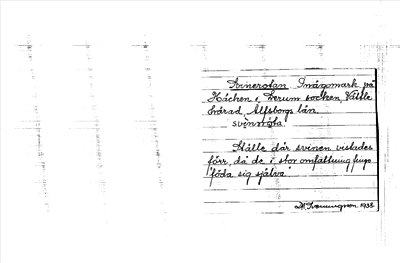 Svinerotan Inägomark på
Håchen i Lerum socken Vättle
härad, Älfsborgs län.
svinrota.
Hålle där svinen vistades
förr, då de i stor omfattning fingo
"föda sig själva"
1938